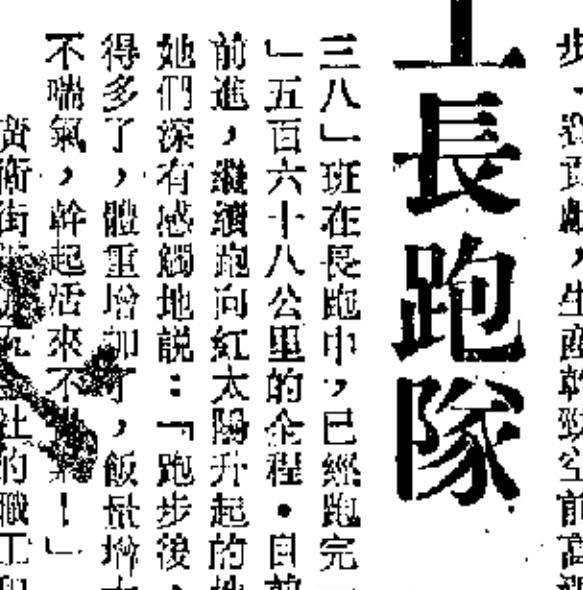 生產幹勁空前高
長跑隊
三八」班在長跑中，已經跑完一
」五百六十八公里的全程・目前
前進，繼續跑向紅太陽升起的地
她們深有感觸地說：「跑步後，
得多了，體重增加了，飯量增
不喘氣，幹起活來不！」
街社的職工和